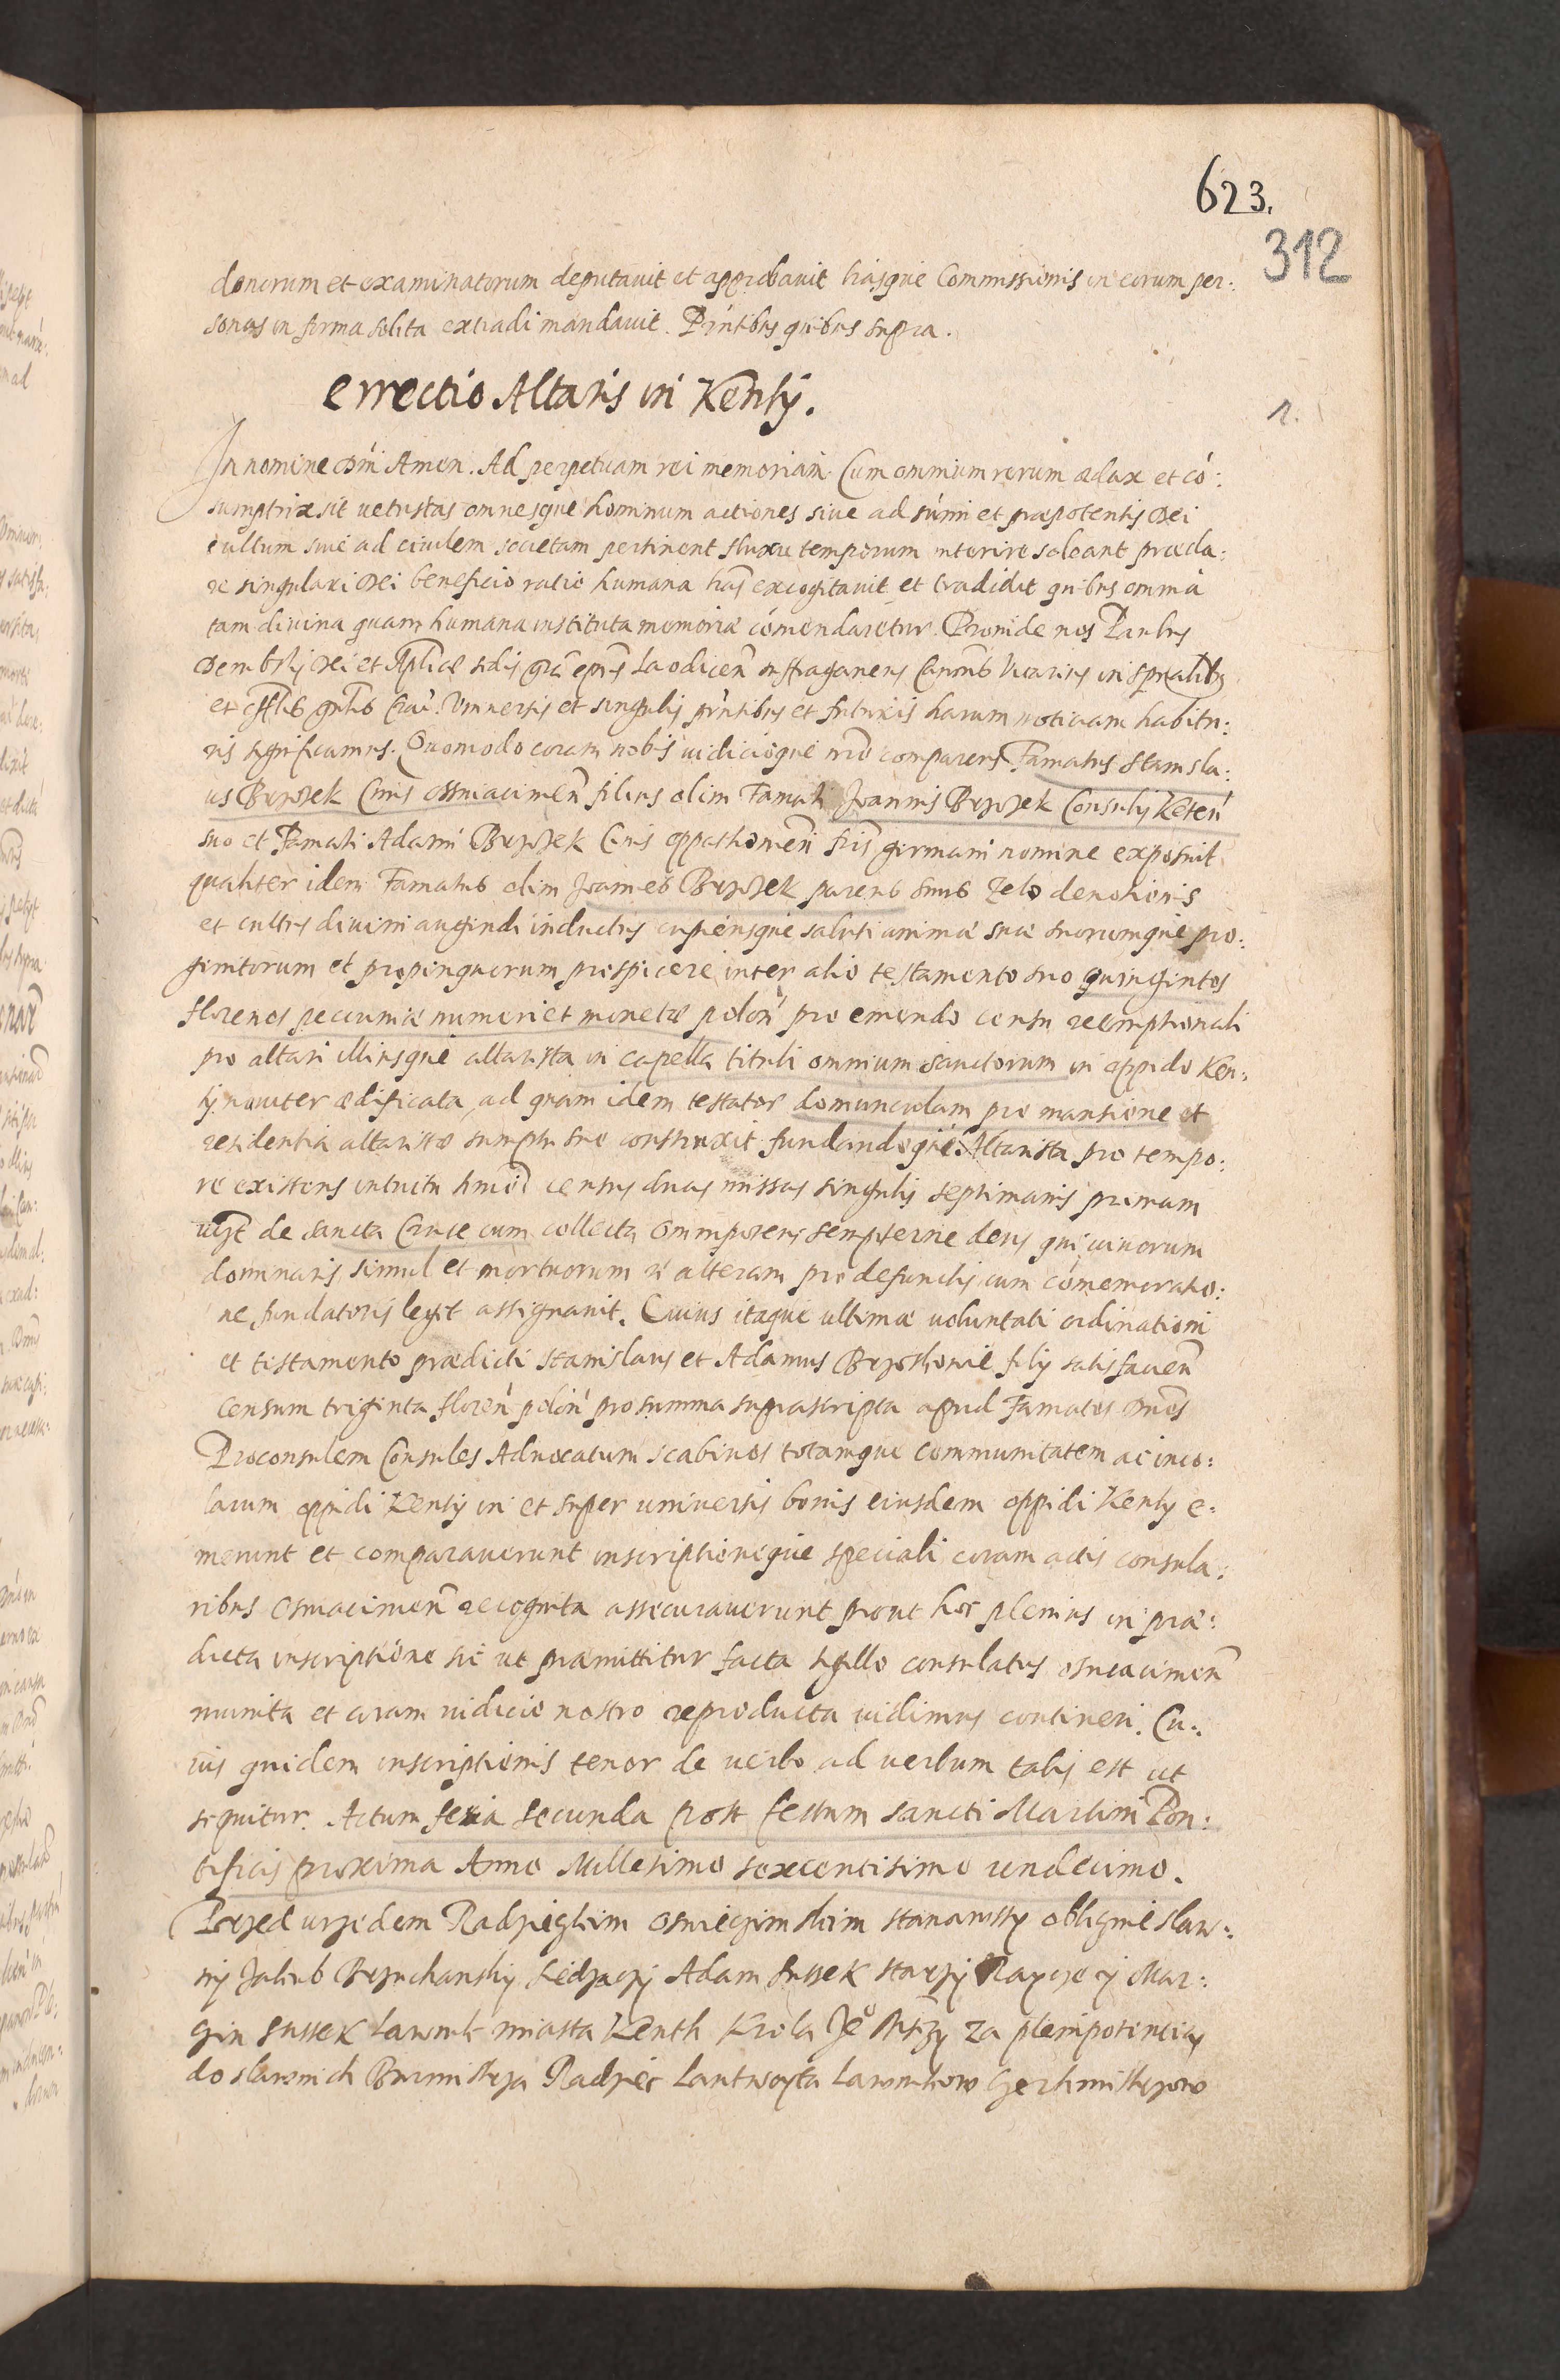 623.
312
donorum et examinatorum deputauit et approbauit l̃rasque Commissionis in eorum per:
sonas in forma solita extradi mandauit. Pñtibus quibus supra.
Errectio Altaris in Kenty.
1.
In nomine Dñi Amen. Ad perpetuam rei memoriam. Cum omnium rerum ædax et cō:
sumptrix sit uetustas omnesque hominum actiones siue ad sum̃i et præpotentis Dei
cultum siue ad eiusdem societam pertinent fluxu temporum interire soleant præcla:
re singulari Dei beneficio ratio humana l̃ras excogitauit et tradidit quibus omnia
tam diuina quam humana instituta memoriæ com̃endaretur. Proinde nos Paulus
Dembski Dei et Aplicæ sedis gr̃a ep̃us Laodicen̄ suffraganeus Canonicus Vicarius in spiritualibus
et off̃lis gñlis Crac̄. Vniuersis et singulis pñtibus et futuris harum notitiam habitu:
ris significamus. Quomodo coram nobis iudicioque nr̃o comparens Famatus Stanisla:
us Brzozek Ciuis Ossuiacimen̄ filius olim Famati Joannis Brzozek Consulis Keten̄
suo et Famati Adami Brzozek Ciuis oppathouien̄ fr̃is germani nomine exposuit
qualiter idem Famatus olim Joannes Brzozek parens suus zelo deuotionis
et cultus diuini augendi inductus cupiensque saluti animæ suæ suorumque pro:
genitorum et propinquorum prospicere inter alia testamento suo quingintos
florenos pecuniæ numeri et monetæ polon̄ pro emendo censu reemptionali
pro altari illiusque altarista in capella tituli omnium sanctorum in oppido Ken:
ty nouiter ædificata, ad quam idem testator domunculam pro mansione et
residentia altaristæ sumptu suo construxit fundandoque Altarista pro tempo:
re existens intuitu hmōi census duas missas singulis septimanis primam
uidelicet de sancta Cruce cum collecta Omnipotens sempiterne deus qui uiuorum
dominaris simul et mortuorum et alteram pro defunctis cum com̃emoratio:
ne fundatoris legit assignauit. Cuius itaque ultimæ uoluntati ordinationi
et testamento prædicti Stanislaus et Adamus Brzozkowie filij satisfacien̄
censum triginta floren̄ polon̄ pro summa suprascripta apud Famatos Dños
Proconsulem Consules Aduocatum Scabinos totamque communitatem ac inco:
larum oppidi Kenty in et super uniuersis bonis eiusdem oppidi Kenty e:
merunt et comparauerunt inscriptioneque speciali coram actis consula:
ribus Osuiacimen̄ recognita assecurauerunt prout hoc plenius in præ:
dicta inscriptione sic ut præmittitur facta sigillo consulatus osuiacimen̄
munita et coram iudicio nostro reproducta uidimus contineri. Cu:
ius quidem inscriptionis tenor de uerbo ad uerbum talis est ut
sequitur. Actum feria secunda post festum sancti Martini Pon:
tificis proxima Anno Millesimo sexcentisimo undecimo.
Przed urzedem Radzieczkim Osuiecimskim stanawszy obliczniè slaw:
ny Jakub Brzuchanski Siedzaczy Adam Sussek starszy Raycze y Mar:
cin Sussek Lawnik miasta Kenth Krola Jeº Mści za plenipotencia
do slawnich Burmistrza Radziec Lantwoyta Lawnikow Czechmistrzow